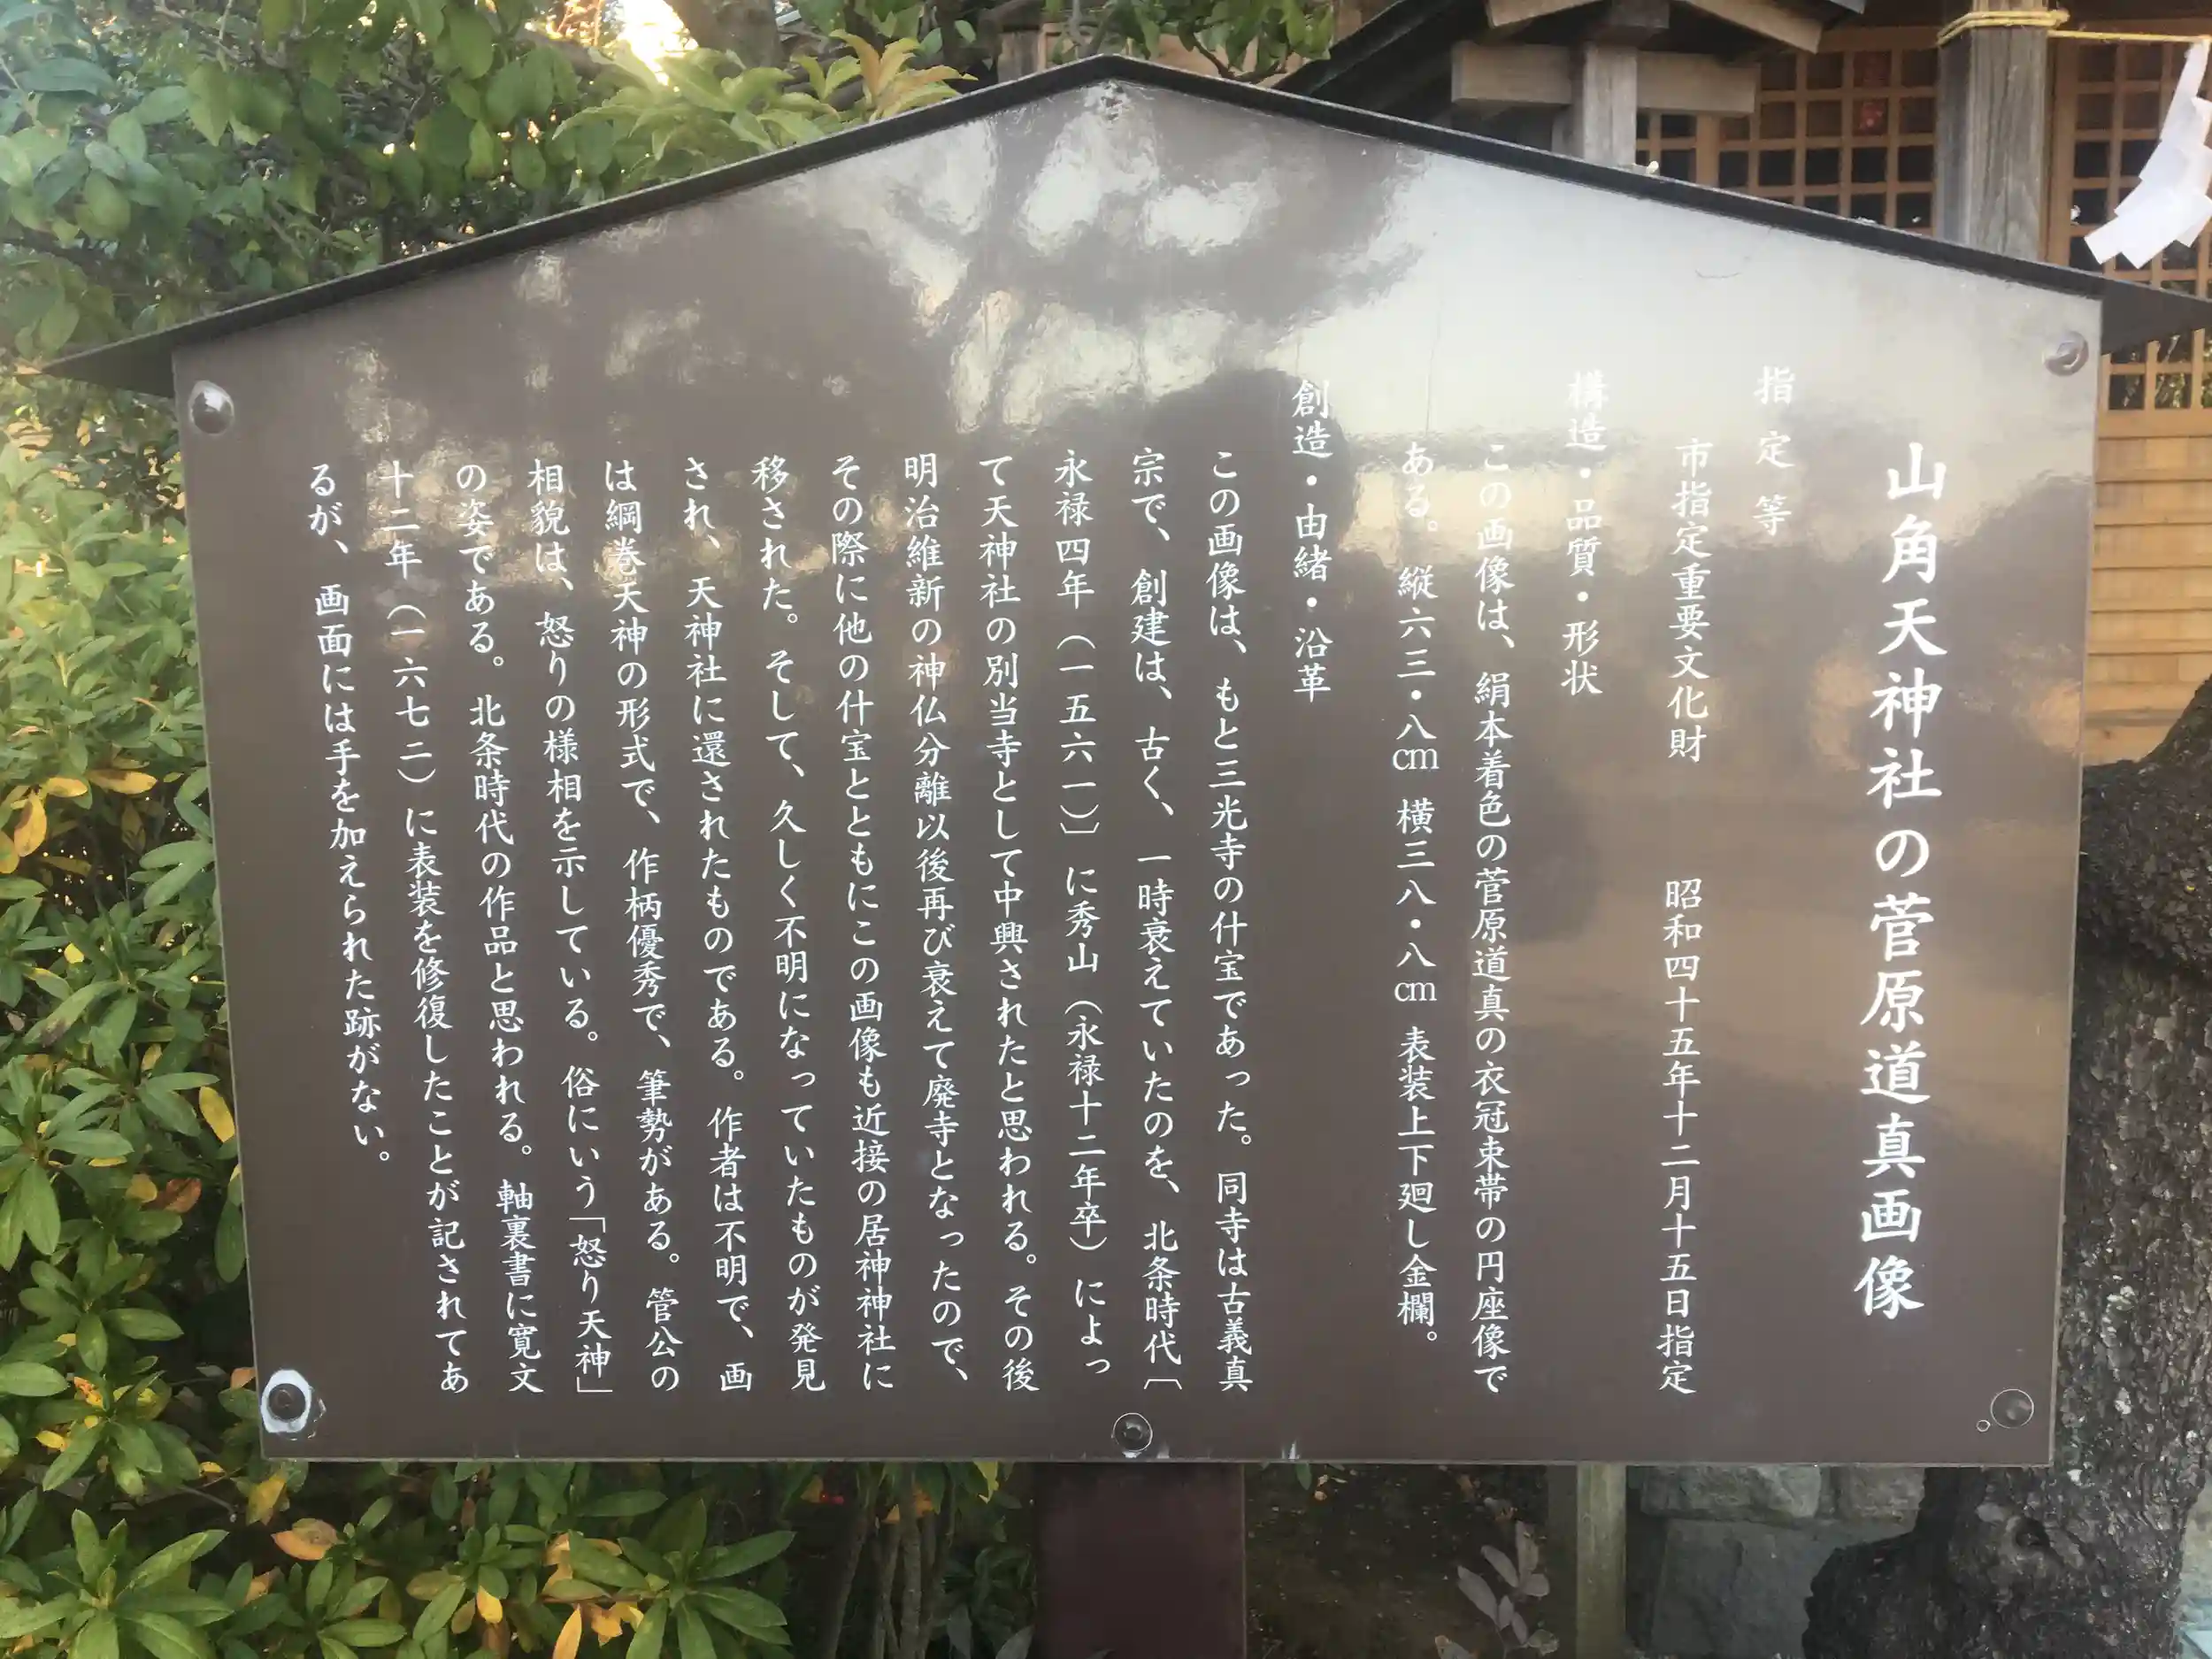 山角天神社の菅原道真画像
指定等
市指定重要文化財 昭和四十五年十二月十五日指定
構造・品質・形状
この画像は、絹本着色の菅原道真の衣冠束帯の円座像で
ある。縦六三・八cm 横三八・八cm 表装上下廻し金欄。
創造・由緒・沿革
この画像は、もと三光寺の什宝であった。同寺は古義真
宗で、創建は、古く、一時衰えていたのを、北条時代〔
永禄四年（一五六一）〕に秀山（永禄十二年卒）によっ
て天神社の別当寺として中興されたと思われる。その後
明治維新の神仏分離以後再び衰えて廃寺となったので、
その際に他の什宝とともにこの画像も近接の居神神社に
移された。そして、久しく不明になっていたものが発見
され、天神社に還されたものである。作者は不明で、画
は綱巻天神の形式で、作柄優秀で、筆勢がある。管公の
相貌は、怒りの様相を示している。俗にいう「怒り天神」
の姿である。北条時代の作品と思われる。軸裏書に寛文
十二年（一六七二）に表装を修復したことが記されてあ
るが、画面には手を加えられた跡がない。